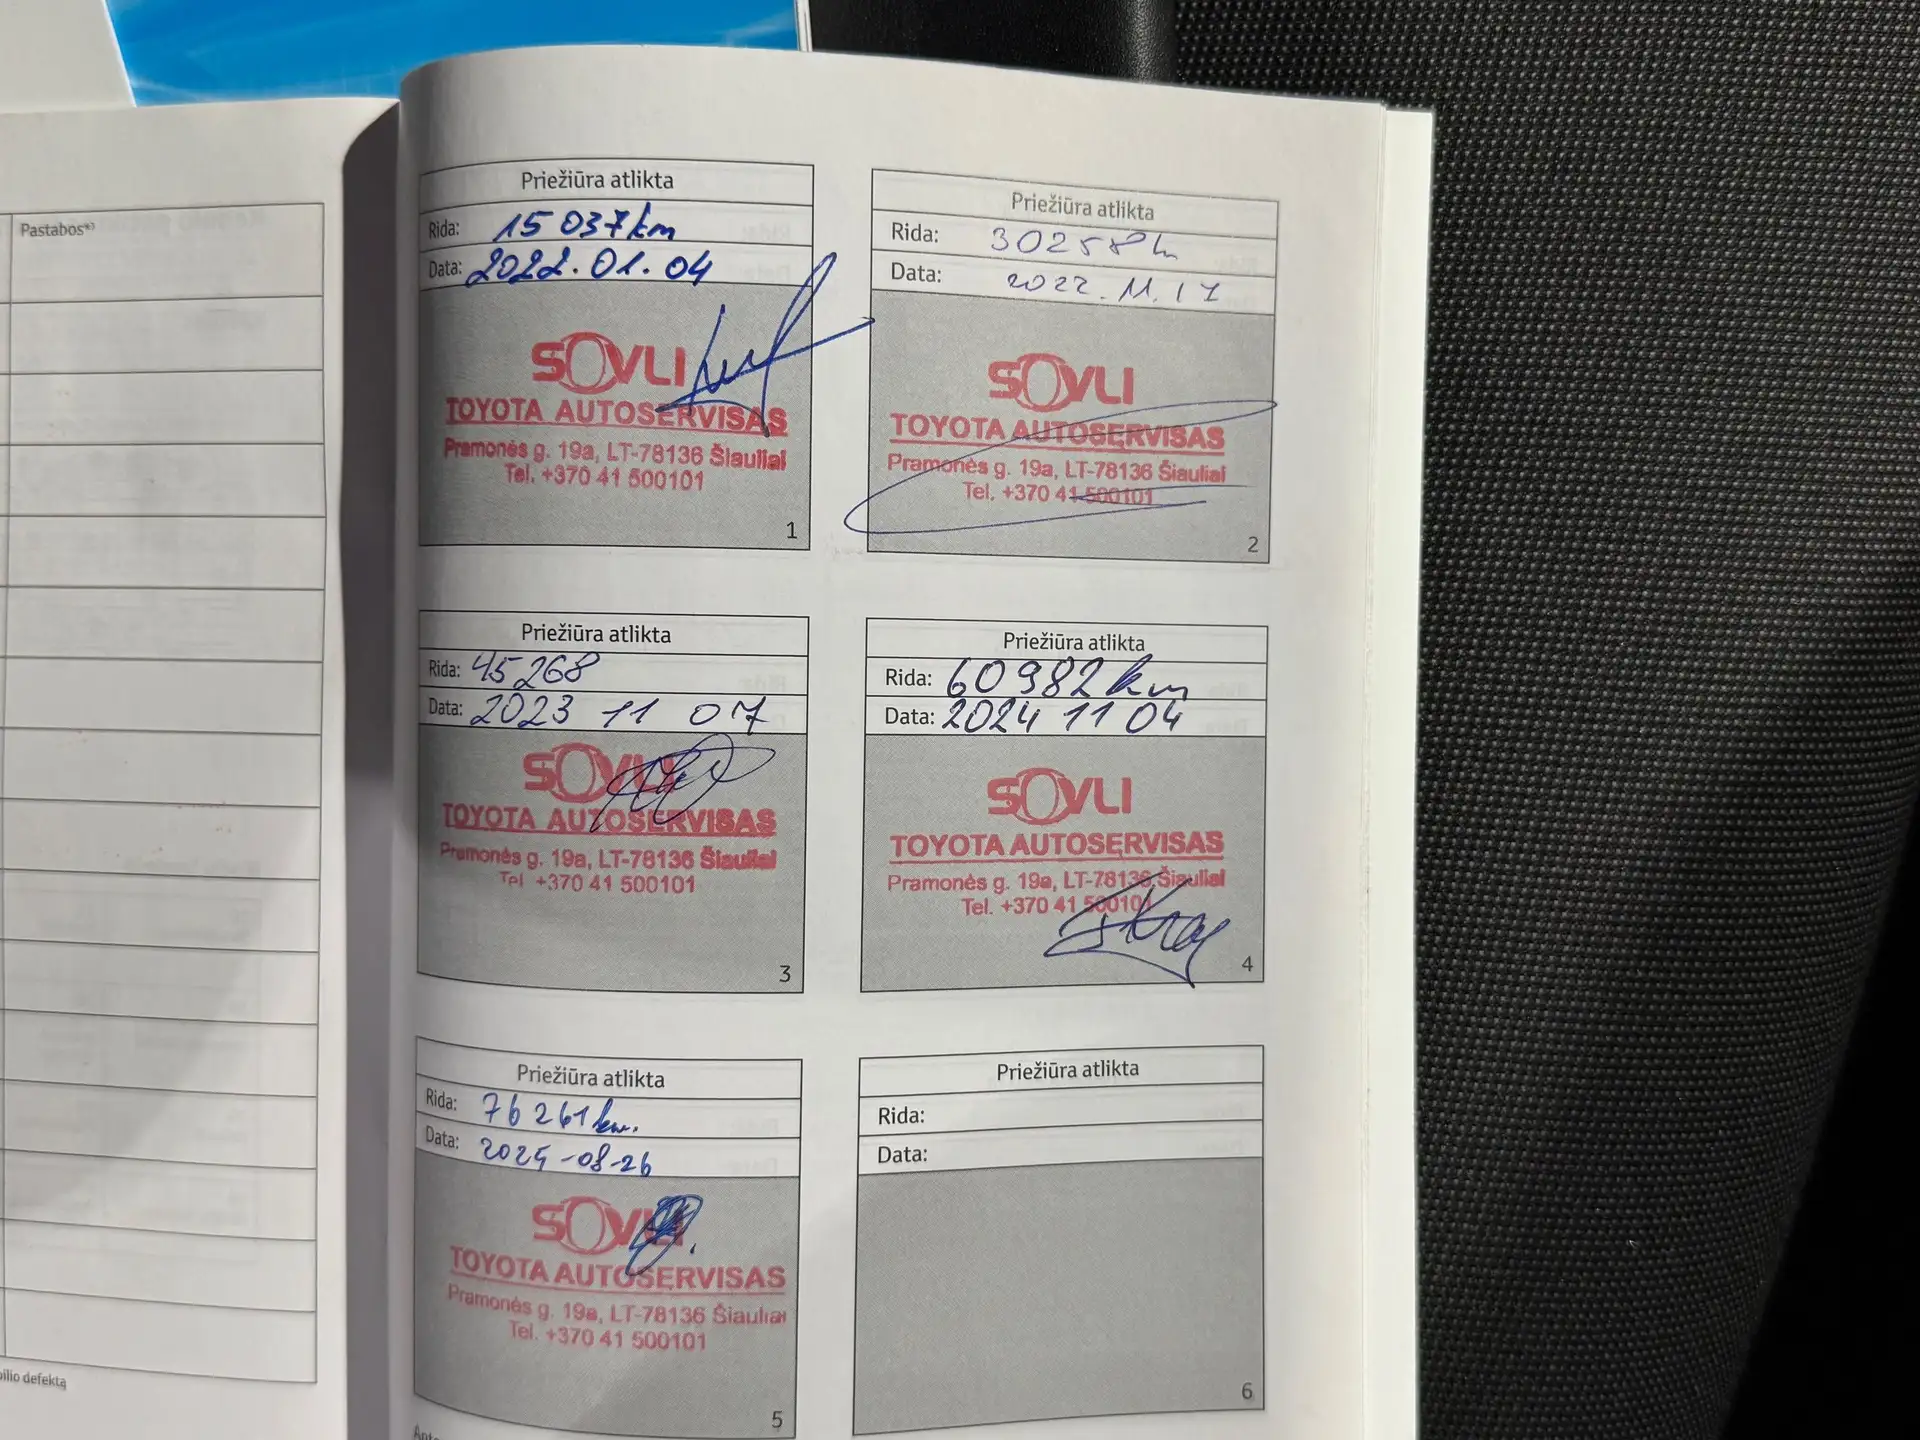 Pastabos*⁾
bilio defektą
Priežiūra atlikta
Rida: 15 037 km
Data: 2022.01.04
SOVLI
TOYOTA AUTOSERVISAS
Pramonės g. 19a, LT-78136 Šiauliai
Tel. +370 41 500101
1
Priežiūra atlikta
Rida: 30258 k
Data: 2022.11.17
SOVLI
TOYOTA AUTOSERVISAS
Pramonės g. 19a, LT-78136 Šiauliai
Tel. +370 41 500101
2
Priežiūra atlikta
Rida: 45268
Data: 2023 11 07
SOVLI
TOYOTA AUTOSERVISAS
Pramonės g. 19a, LT-78136 Šiauliai
Tel. +370 41 500101
3
Priežiūra atlikta
Rida: 60982 km
Data: 2024 11 04
SOVLI
TOYOTA AUTOSERVISAS
Pramonės g. 19a, LT-78136 Šiauliai
Tel. +370 41 500101
4
Priežiūra atlikta
Rida: 76 261 km.
Data: 2025-08-26
SOVLI
TOYOTA AUTOSERVISAS
Pramonės g. 19a, LT-78136 Šiauliai
Tel. +370 41 500101
5
Priežiūra atlikta
Rida:
Data:
6